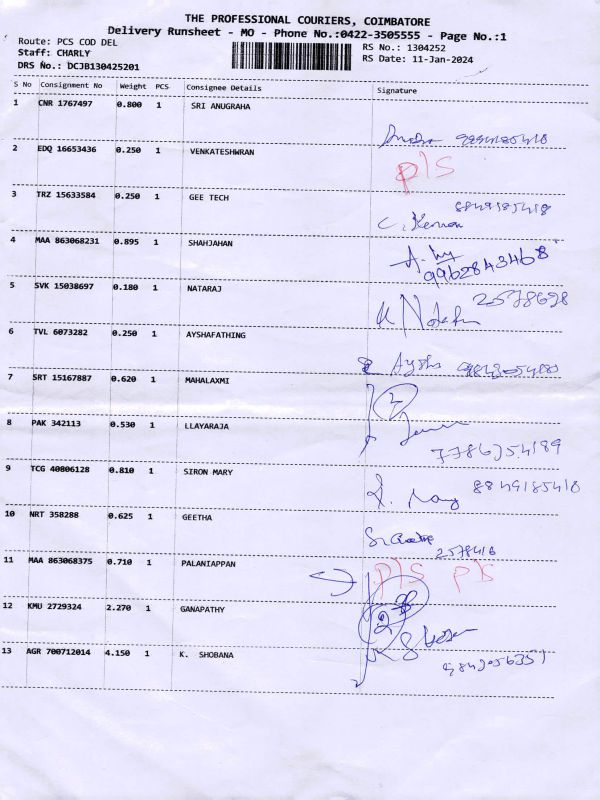 THE PROFESSIONAL COURIERS, COIMBATORE
Delivery Runsheet - MO - Phone No.:0422-3505555 - Page No.:1
Route: PCS COD DEL
RS No.: 1304252
Staff: CHARLY
RS Date: 11-Jan-2024
DRS No.: DCJB130425201
S No Consignment No Weight PCS Consignee Details Signature
1 CNR 1767497 0.800 1 SRI ANUGRAHA
2 EDQ 16653436 0.250 1 VENKATESHWRAN
p/s
3 TRZ 15633584 0.250 1 GEE TECH
8849185418
4 MAA 863068231 0.895 1 SHAHJAHAN
9962843468
5 SVK 15038697 0.180 1 NATARAJ
2578698
6 TVL 6073282 0.250 1 AYSHAFATHING
Aysha
7 SRT 15167887 0.620 1 MAHALAXMI
2
8 PAK 342113 0.530 1 LLAYARAJA
9 TCG 40806128 0.810 1 SIRON MARY
8849185418
10 NRT 358288 0.625 1 GEETHA
2578416
11 MAA 863068375 0.710 1 PALANIAPPAN
p/s p/s
12 KMU 2729324 2.270 1 GANAPATHY
13 AGR 700712014 4.150 1 K. SHOBANA
9842056351